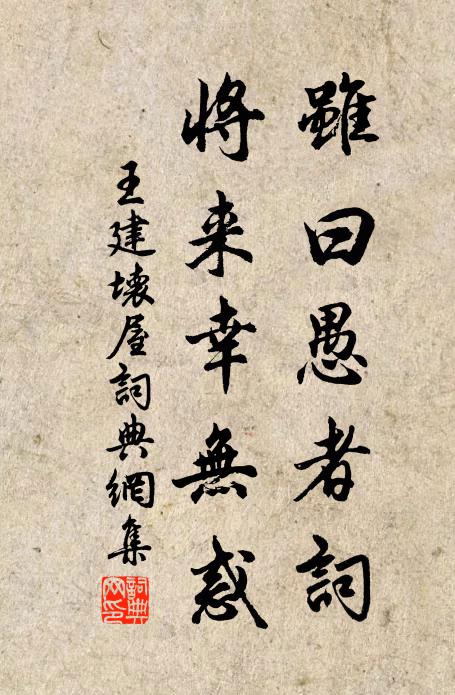 雖曰愚者詞
將来幸無惑
王建壞屋詞典網集
詞典
网印